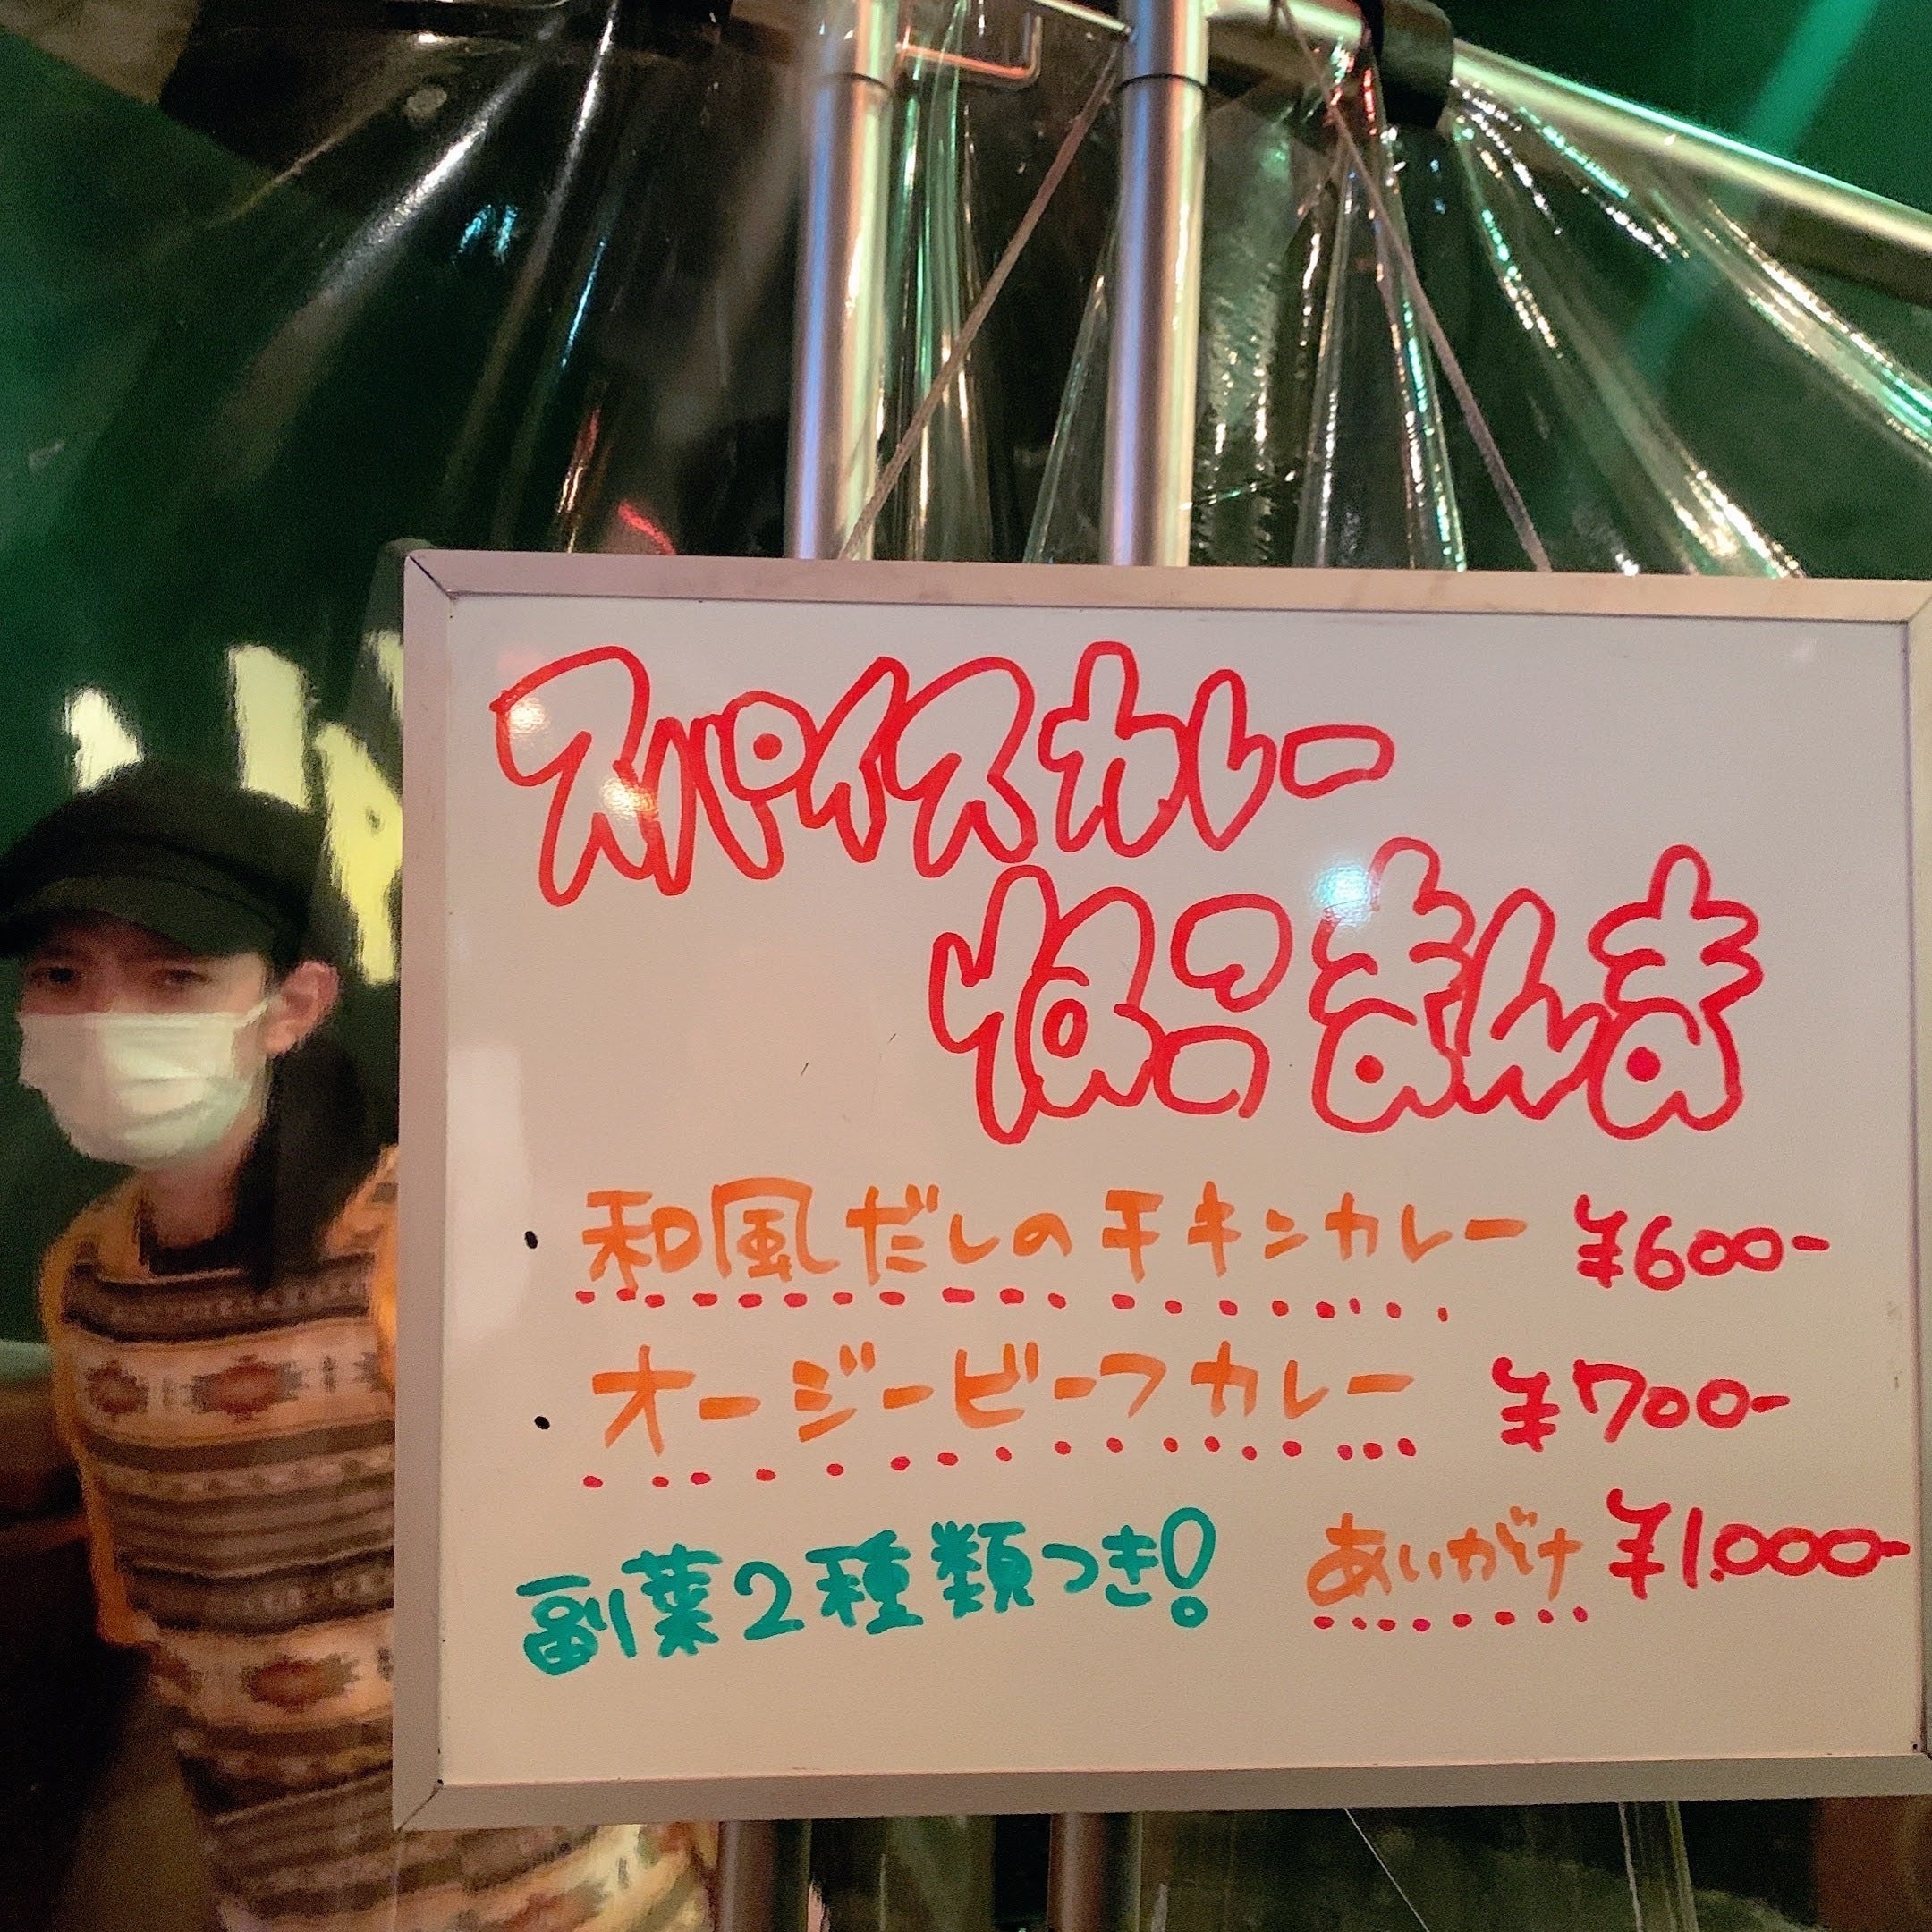 スパイスカレー
ねこまんま
・和風だしのチキンカレー ¥600-
・オージービーフカレー ¥700-
副菜2種類つき! あいがけ ¥1.000-